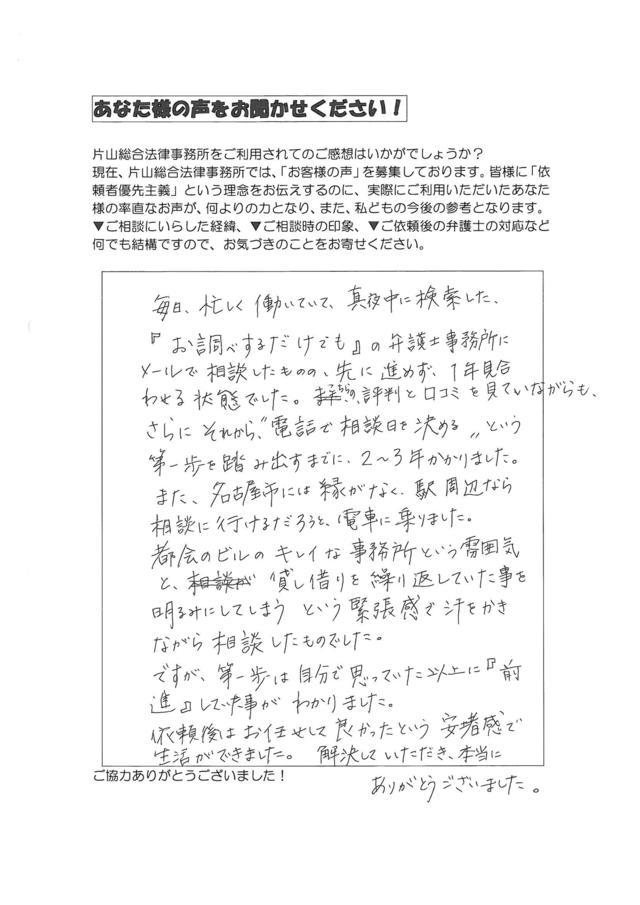 あなた様の声をお聞かせください!
片山総合法律事務所をご利用されてのご感想はいかがでしょうか?
現在、片山総合法律事務所では、「お客様の声」を募集しております。皆様に「依
頼者優先主義」という理念をお伝えするのに、実際にご利用いただいたあなた
様の率直なお声が、何よりの力となり、また、私どもの今後の参考となります。
▼ご相談にいらした経緯、▼ご相談時の印象、▼ご依頼後の弁護士の対応など
何でも結構ですので、お気づきのことをお寄せください。
毎日、忙しく働いていて、真夜中に検索した、
『お調べするだけでも』の弁護士事務所に
メールで相談したものの、先に進めず、1年見合
わせる状態でした。こちらの、評判と口コミを見ていながらも、
さらにそれから、"電話で相談日を決める"という
第一歩を踏み出すまでに、2~3年かかりました。
また、名古屋市には縁がなく、駅周辺なら
相談に行けるだろうと、電車に乗りました。
都会のビルのキレイな事務所という雰囲気
と、相談が 貸し借りを繰り返していた事を
明るみにしてしまうという緊張感で汗をかき
ながら相談したものでした。
ですが、第一歩は自分で思っていた以上に『前
進』していた事がわかりました。
依頼後はお任せして良かったという安堵感で
生活ができました。解決していただき、本当に
ご協力ありがとうございました!
ありがとうございました。